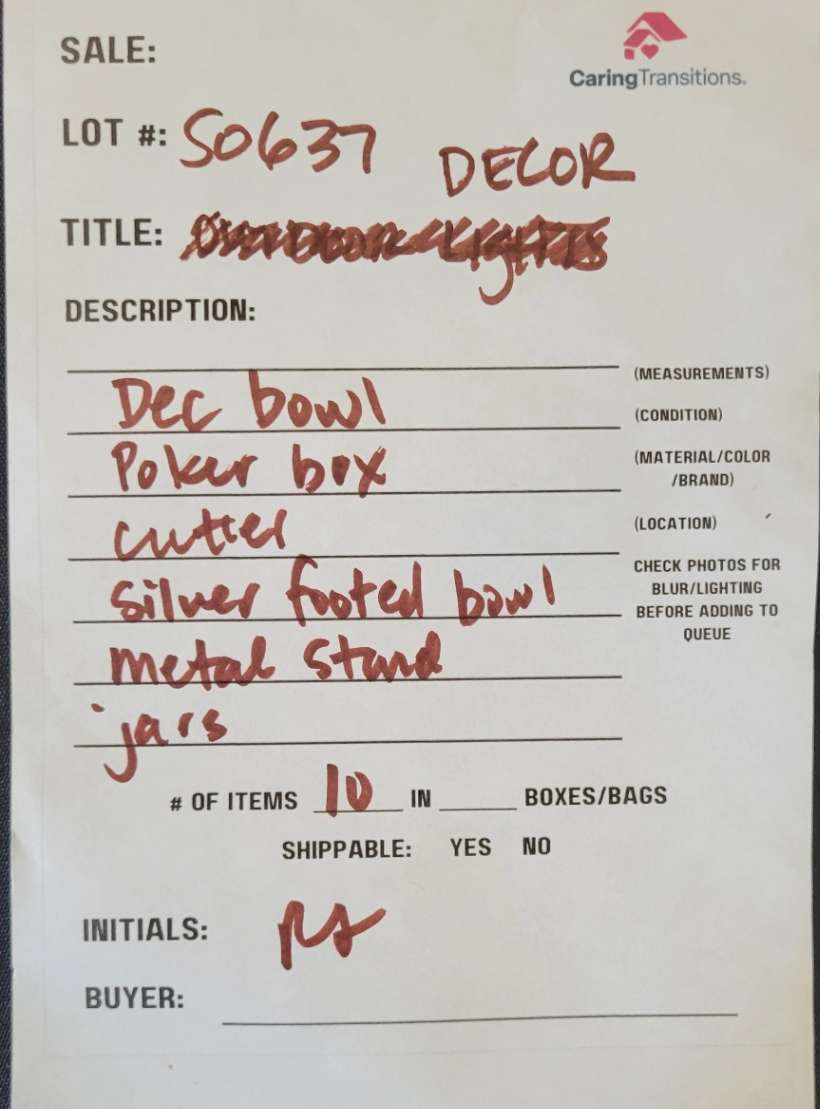 SALE:
CaringTransitions.
LOT #: S0637
DECOR
TITLE: OUTDOOR LIGHTS
DESCRIPTION:
(MEASUREMENTS)
Dec bowl
(CONDITION)
Poker box
(MATERIAL/COLOR
/BRAND)
cutter
(LOCATION)
silver footed bowl
CHECK PHOTOS FOR
BLUR/LIGHTING
BEFORE ADDING TO
QUEUE
metal stand
jars
# OF ITEMS 10 IN ____ BOXES/BAGS
SHIPPABLE: YES NO
INITIALS:
BUYER: